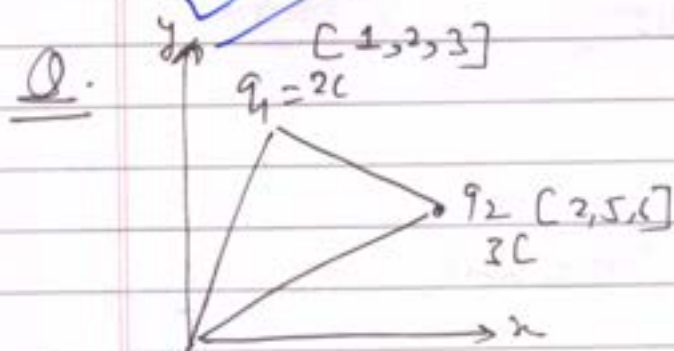 y [1,2,3]
Q.
q1 = 2C
q2 [2,5,6]
3C
x